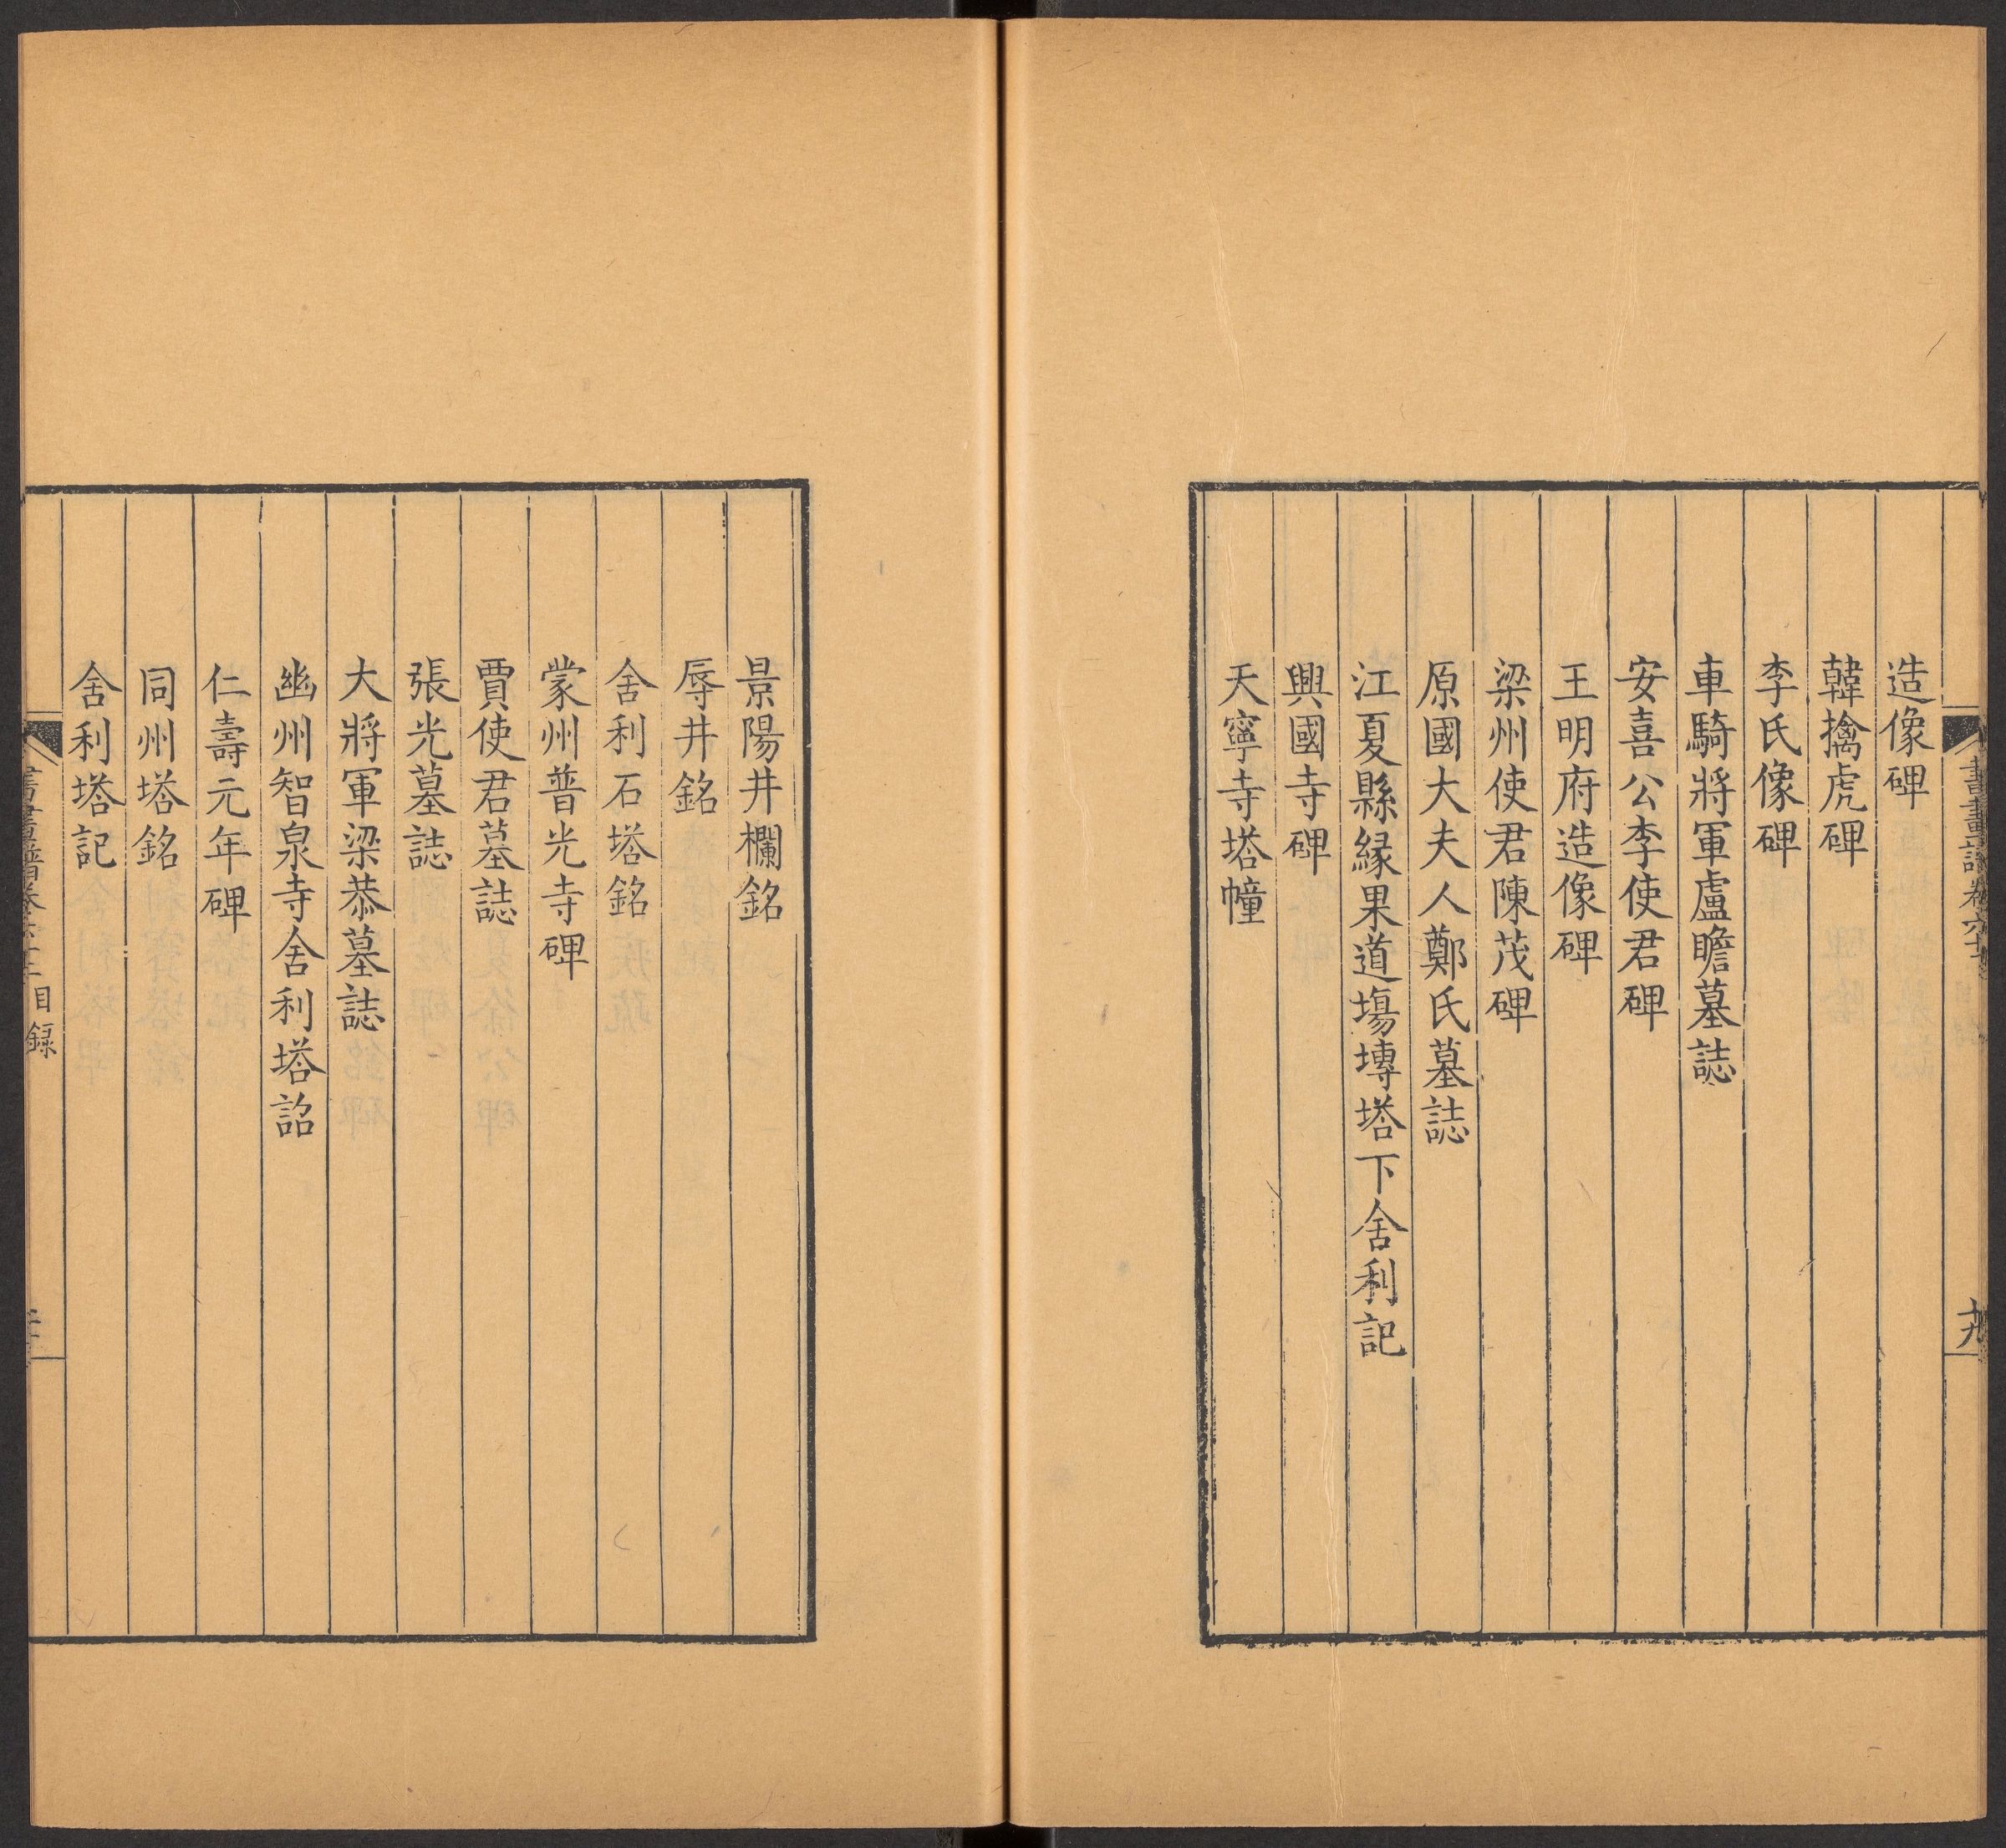 造像碑
韓擒虎碑
李氏像碑
車騎將軍盧瞻墓誌
安喜公李使君碑
王明府造像碑
梁州使君陳茂碑
原國大夫人鄭氏墓誌
江夏縣緣果道場塼塔下舍利記
興國寺碑
天寧寺塔幢
十九
景陽井欄銘
辱井銘
舍利石塔銘
蒙州普光寺碑
賈使君墓誌
張光墓誌
大將軍梁恭墓誌
幽州智泉寺舍利塔詔
仁壽元年碑
同州塔銘
舍利塔記
目錄